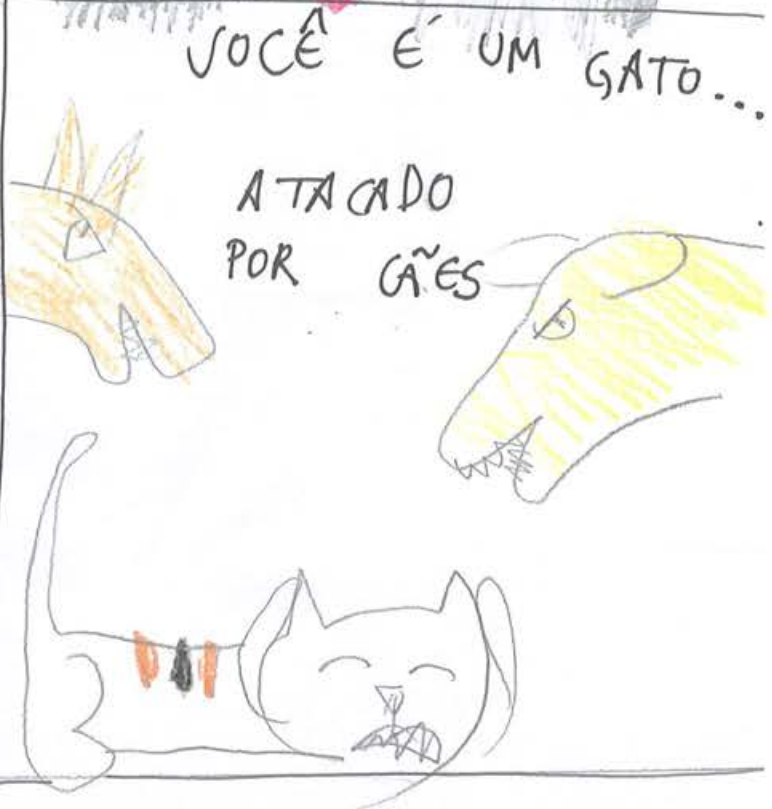 VOCÊ É UM GATO...
ATACADO
POR CÃES